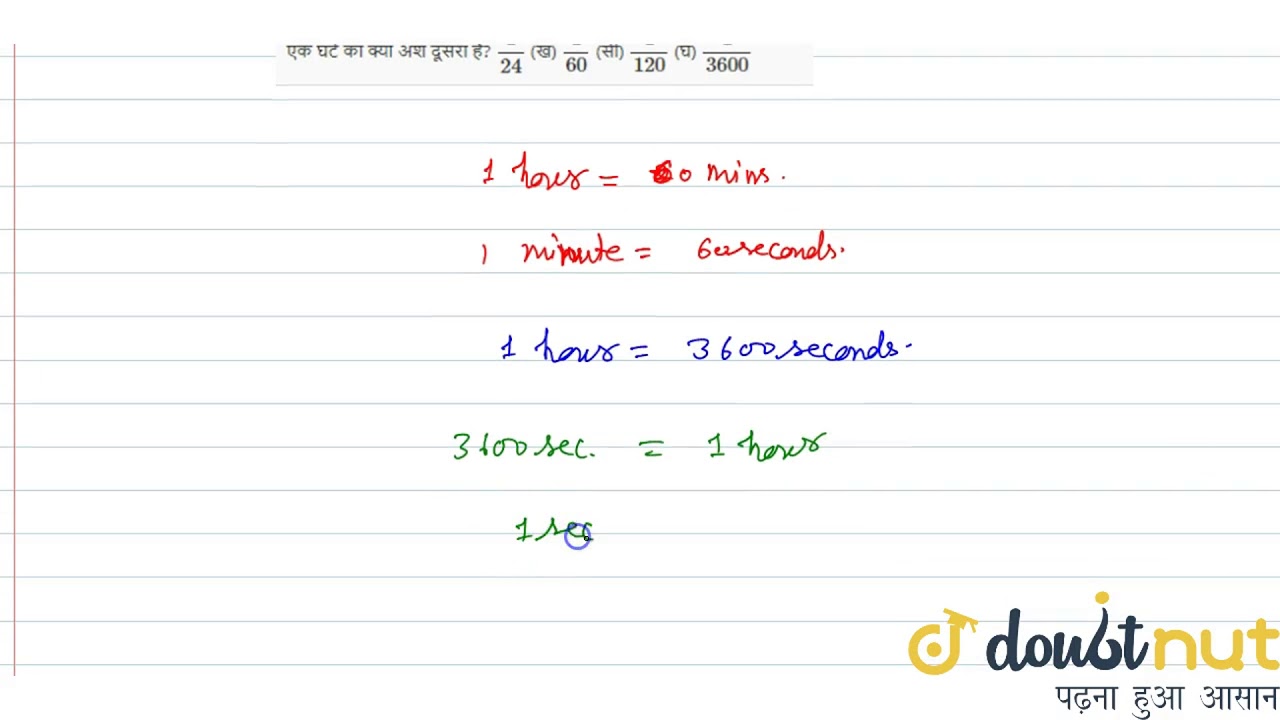 एक घंटे का क्या अंश दूसरा है? 24 (ख) 60 (सी) 120 (घ) 3600
1 hour = 60 mins.
1 minute = 60 seconds.
1 hour = 3600 seconds.
3600 sec. = 1 hour
1 sec
doubtnut
पढ़ना हुआ आसान